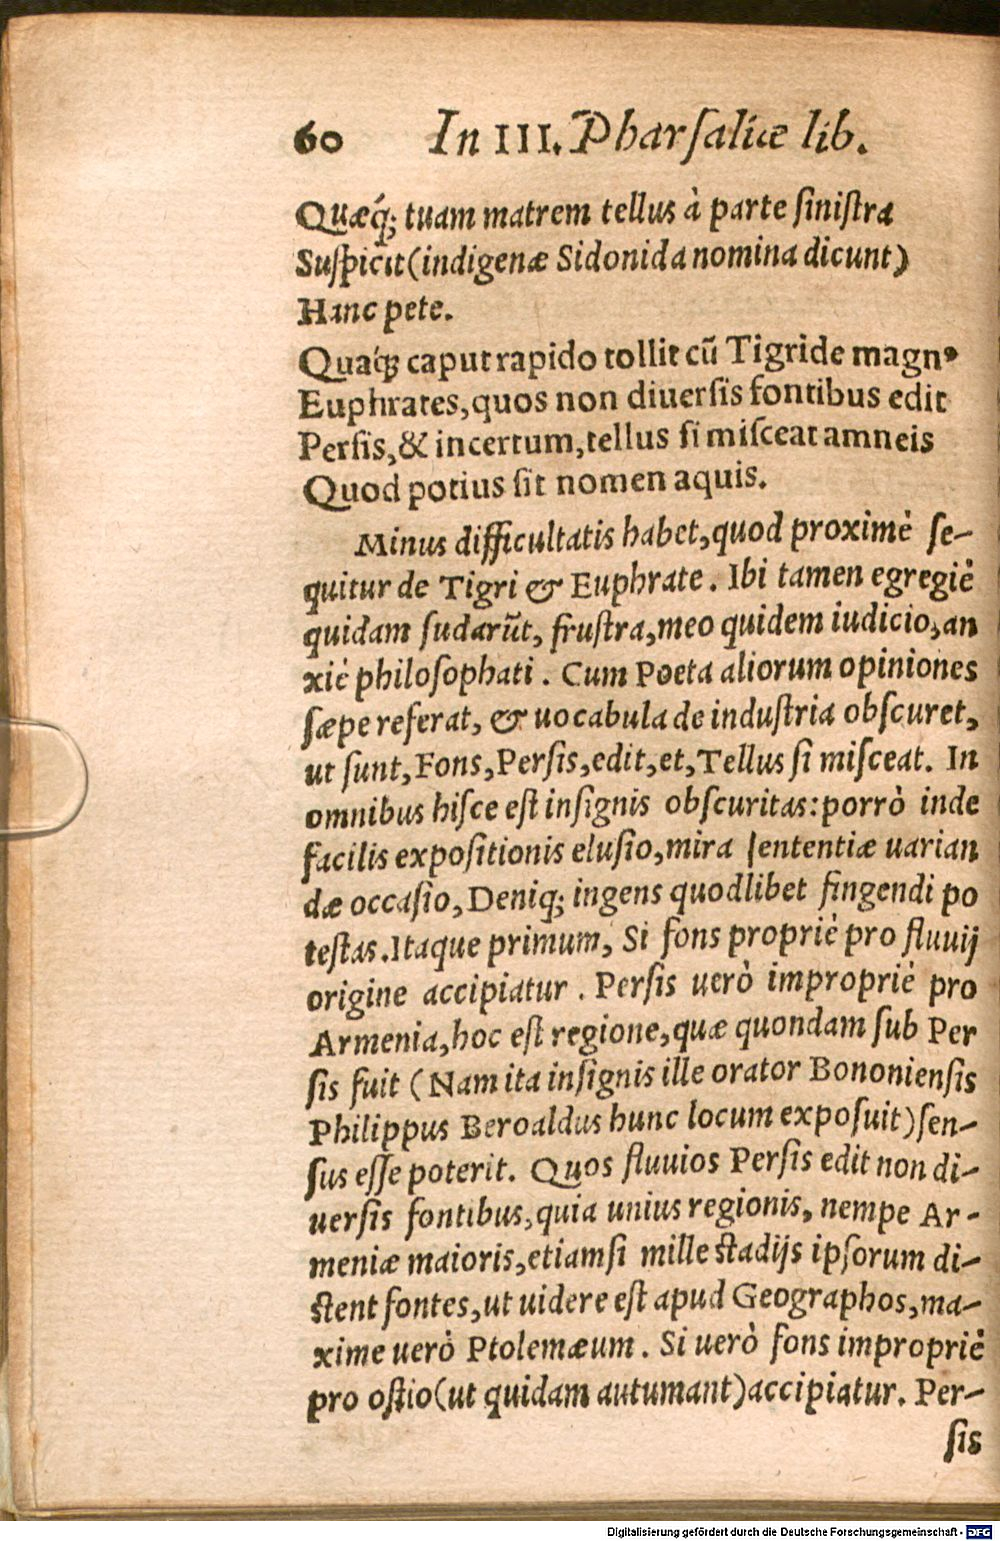 60 In III. Pharsaliæ lib.
Quæq́; tuam matrem tellus à parte siniſtra
Suſpicit (indigenæ Sidonida nomina dicunt)
Hanc pete.
Quaq́; caput rapido tollit cū Tigride magno
Euphrates, quos non diuerſis fontibus edit
Perſis, & incertum, tellus ſi miſceat amneis
Quod potius ſit nomen aquis.
Minus difficultatis habet, quod proximè ſe-
quitur de Tigri & Euphrate. Ibi tamen egregiè
quidam ſudarūt, fruſtra, meo quidem iudicio, an
xiè philoſophati. Cum Poeta aliorum opiniones
ſæpe referat, & uocabula de induſtria obſcuret,
ut ſunt, Fons, Perſis, edit, et, Tellus ſi miſceat. In
omnibus hiſce eſt inſignis obſcuritas: porrò inde
facilis expoſitionis eluſio, mira ſententiæ uarian
dæ occaſio, Deniq; ingens quodlibet fingendi po
teſtas. Itaque primum, Si fons propriè pro fluuij
origine accipiatur. Perſis uerò impropriè pro
Armenia, hoc eſt regione, quæ quondam ſub Per
ſis fuit (Nam ita inſignis ille orator Bononienſis
Philippus Beroaldus hunc locum expoſuit) ſen-
ſus eſſe poterit. Quos fluuios Perſis edit non di-
uerſis fontibus, quia unius regionis, nempe Ar-
meniæ maioris, etiamſi mille ſtadijs ipſorum di-
ſtent fontes, ut uidere eſt apud Geographos, ma-
xime uerò Ptolemæum. Si uerò fons impropriè
pro oſtio (ut quidam autumant) accipiatur. Per-
ſis
Digitalisierung gefördert durch die Deutsche Forschungsgemeinschaft - DFG